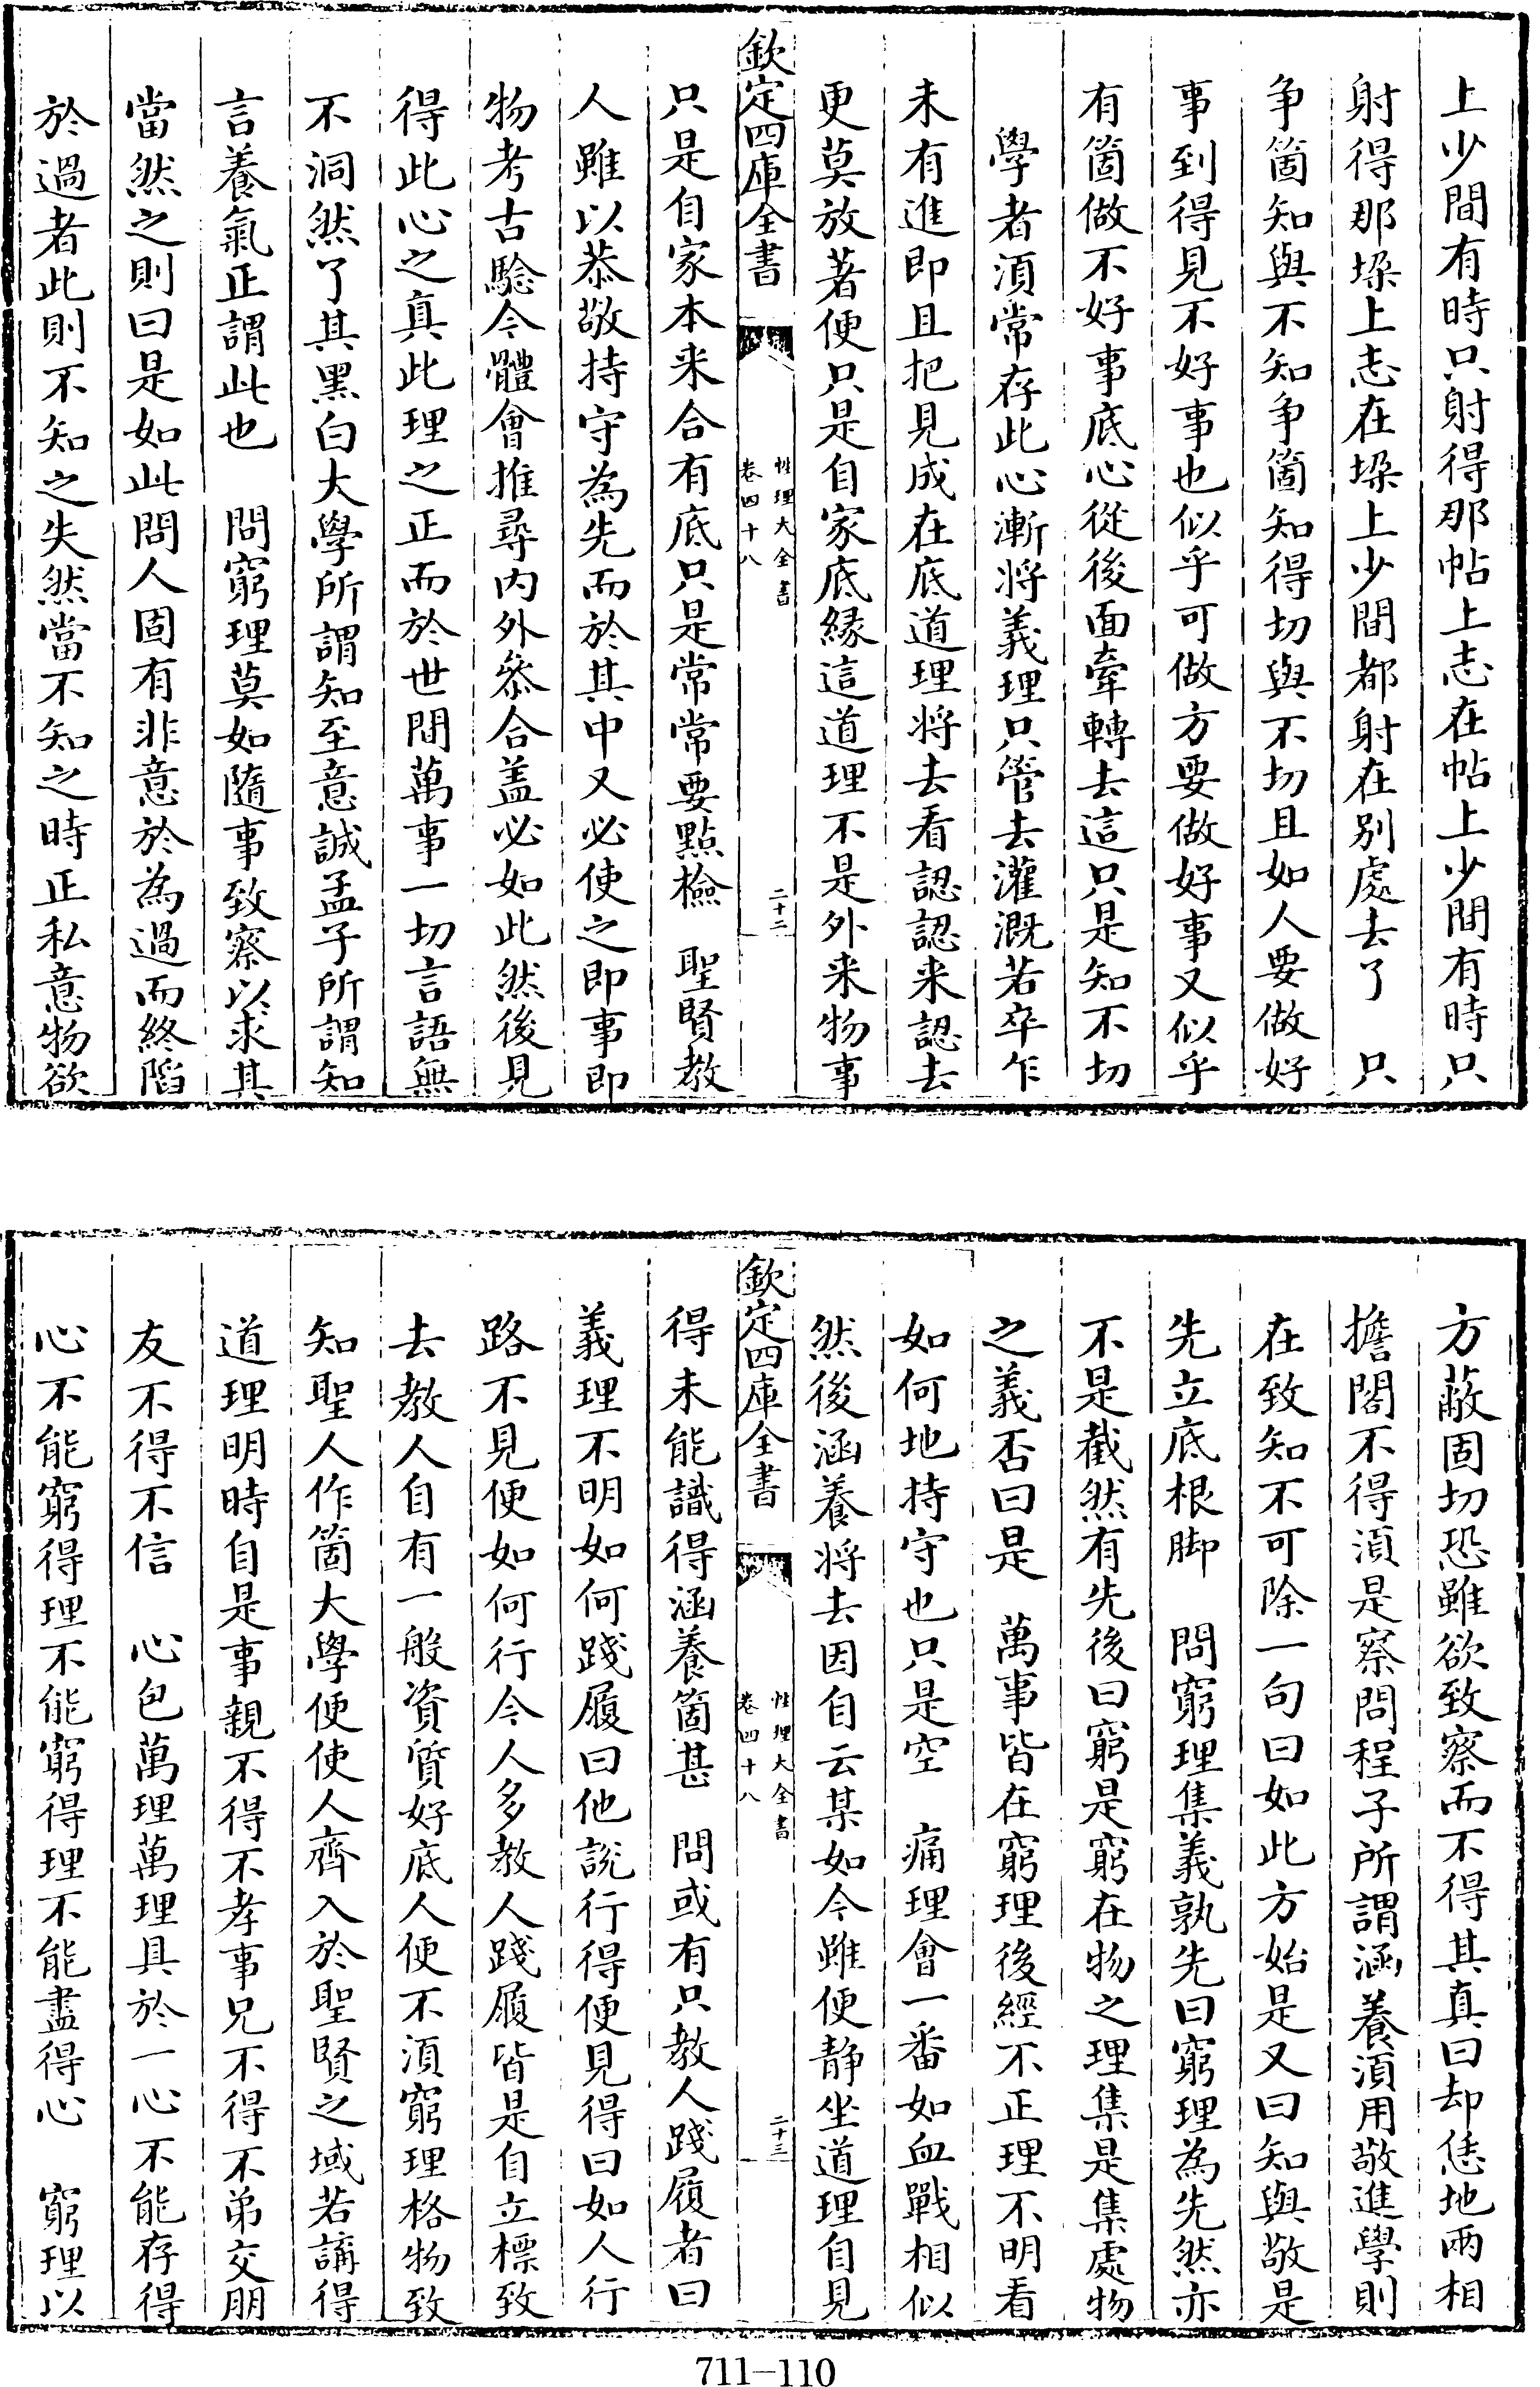 上少間有時只射得那帖上志在帖上少間有時只
射得那垜上志在垜上少間都射在别處去了　只
争箇知與不知争箇知得切與不切且如人要做好
事到得見不好事也似乎可做方要做好事又似乎
有箇做不好事底心從後面牽轉去這只是知不切
學者須常存此心漸將義理只管去灌溉若卒乍
未有進即且把見成在底道理將去看認認来認去
更莫放著便只是自家底縁這道理不是外来物事
欽定四庫全書
性理大全書
卷四十八
二十二
只是自家本来合有底只是常常要點檢　聖賢教
人雖以恭敬持守為先而於其中又必使之即事即
物考古驗今體會推尋内外叅合盖必如此然後見
得此心之真此理之正而於世間萬事一切言語無
不洞然了其黑白大學所謂知至意誠孟子所謂知
言養氣正謂此也　問窮理莫如隨事致察以求其
當然之則曰是如此問人固有非意於為過而終陷
於過者此則不知之失然當不知之時正私意物欲
方蔽固切恐雖欲致察而不得其真曰却恁地兩相
擔閣不得須是察問程子所謂涵養須用敬進學則
在致知不可除一句曰如此方始是又曰知與敬是
先立底根脚　問窮理集義孰先曰窮理為先然亦
不是截然有先後曰窮是窮在物之理集是集處物
之義否曰是　萬事皆在窮理後經不正理不明看
如何地持守也只是空　痛理會一番如血戰相似
然後涵養將去因自云某如今雖便静坐道理自見
欽定四庫全書
性理大全書
卷四十八
二十三
得未能識得涵養箇甚　問或有只教人踐履者曰
義理不明如何踐履曰他說行得便見得曰如人行
路不見便如何行今人多教人踐履皆是自立標致
去教人自有一般資質好底人便不須窮理格物致
知聖人作箇大學便使人齊入於聖賢之域若講得
道理明時自是事親不得不孝事兄不得不弟交朋
友不得不信　心包萬理萬理具於一心不能存得
心不能窮得理不能窮得理不能盡得心　窮理以
711-110